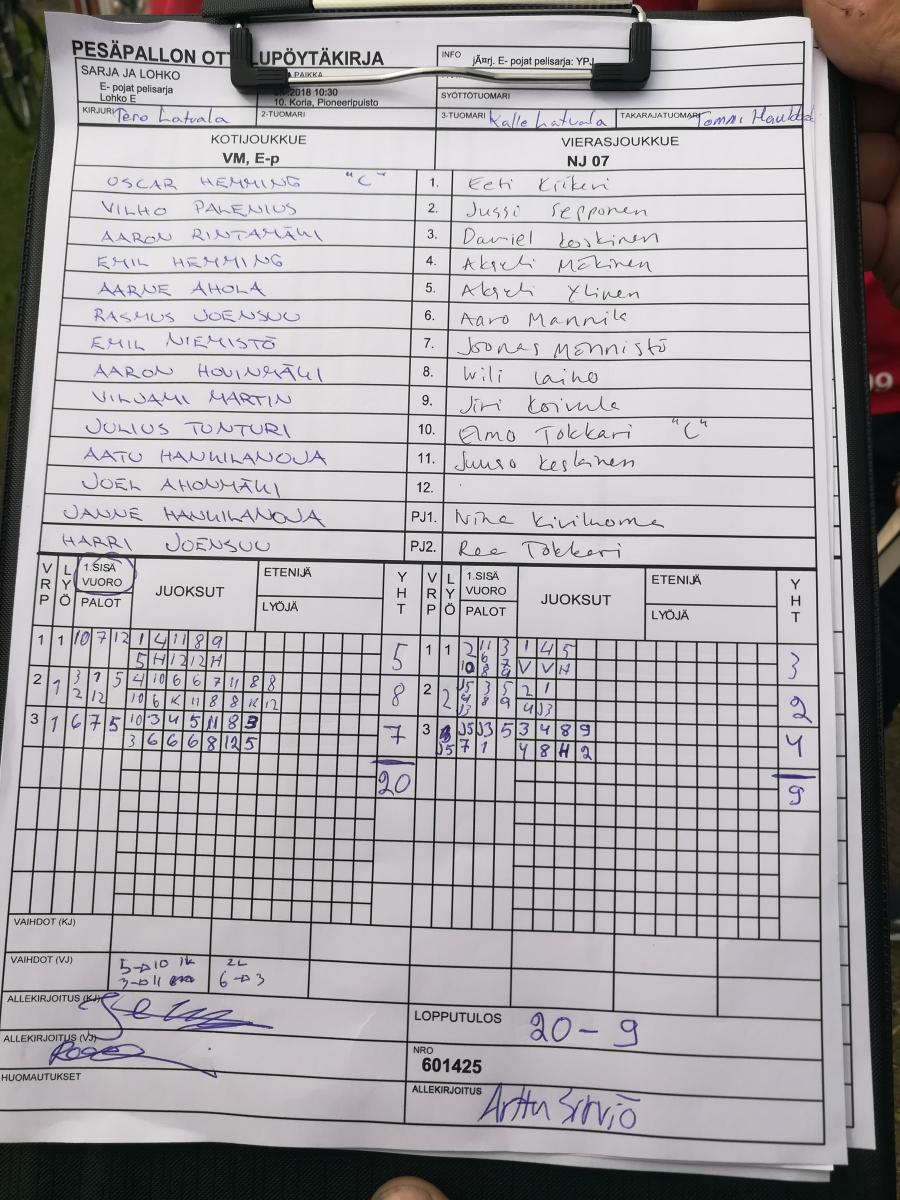 PESÄPALLON OTT LUPÖYTÄKIRJA
INFO jÄ¤rj. E- pojat pelisarja: YPJ
SARJA JA LOHKO
E- pojat pelisarja
Lohko E
PAIKKA
2018 10:30
10. Koria, Pioneeripuisto
SYÖTTÖTUOMARI
KIRJURI Pero Latvala 2-TUOMARI 3-TUOMARI Kalle Latvala TAKARAJATUOMARI Tommi
KOTIJOUKKUE VIERASJOUKKUE
VM, E-p NJ 07
OSCAR HEMMING "C" 1. Eeti
VILHO PALENIUS 2. Jussi Sepponen
AARON RINTAMÄKI 3. Daniel Koskinen
EMIL HEMMING 4. Akseli Mäkinen
AARNE AHOLA 5. Akseli Ylinen
RASMUS JOENSUU 6. Aaro Mannila
EMIL NIEMISTÖ 7. Joonas Männistö
AARON HOVINMÄKI 8. Wili Laiho
VILJAMI MARTIN 9. Jiri Koivula
JULIUS TUNTURI 10. Elmo Tokkari "C"
AATU HANKILANOJA 11. Juuso Keskinen
JOEL AHONMÄKI 12.
JANNE HANKILANOJA PJ1. Nina Kiviluoma
HARRI JOENSUU PJ2. Tokkari
VRP LYÖ 1.SISÄ VUORO PALOT JUOKSUT ETENIJÄ LYÖJÄ YHT VRP LYÖ 1.SISÄ VUORO PALOT JUOKSUT ETENIJÄ LYÖJÄ YHT
1 1 10 7 12 1 4 11 8 9 5 1 1 2 11 3 1 4 5 3
5 H 12 12 H 6 7 V V H
2 1 3 1 5 4 10 6 6 7 11 8 8 8 2 2 J5 3 5 2 1 2
2 12 10 6 K 11 8 8 K 12 8 9 4 J3
3 1 6 7 5 10 3 4 5 11 8 3 7 3 J5 J3 5 3 4 8 9 4
3 6 6 6 8 12 5 J5 7 1 4 8 H 2
20 9
VAIHDOT (KJ)
VAIHDOT (VJ) 5→10 1L 2L
3→11 6→3
ALLEKIRJOITUS (KJ)
LOPPUTULOS 20 - 9
ALLEKIRJOITUS (VJ)
NRO
601425
HUOMAUTUKSET
ALLEKIRJOITUS Arttu